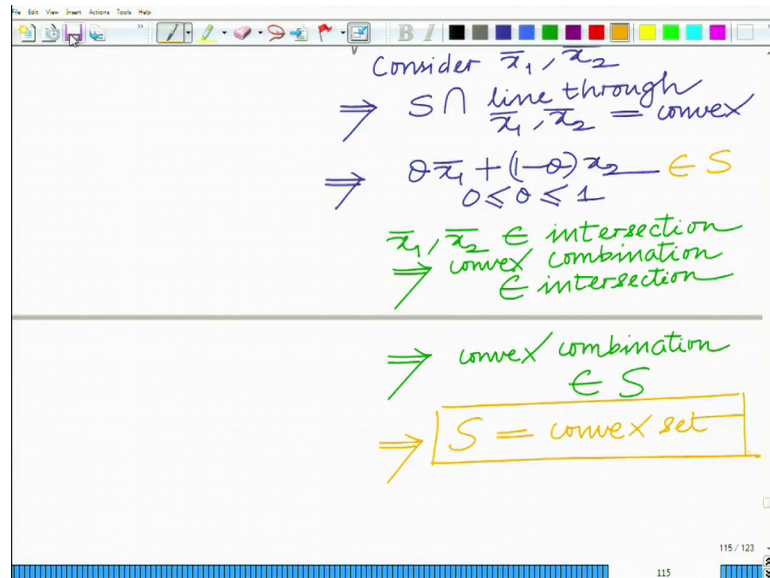 File Edit View Insert Actions Tools Help
B I
Consider x̄₁, x̄₂
⇒ S ∩ line through
x̄₁, x̄₂ = convex
⇒ θx̄₁ + (1-θ)x₂ ∈ S
0 ≤ θ ≤ 1
x̄₁, x̄₂ ∈ intersection
⇒ convex combination
∈ intersection
⇒ convex combination
∈ S
⇒ S = convex set
115 / 123
115